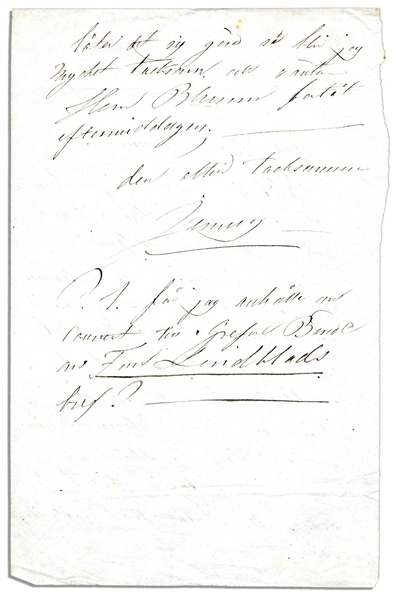 låter det sig göra så blir jag
mycket tacksam och vänta
Herr Blumm
eftermiddagen.
den alltid tacksamma
Jenny
P. S. får jag anhålla om
couvert till Grefve Bonde
om Fru Lindblads
bref?